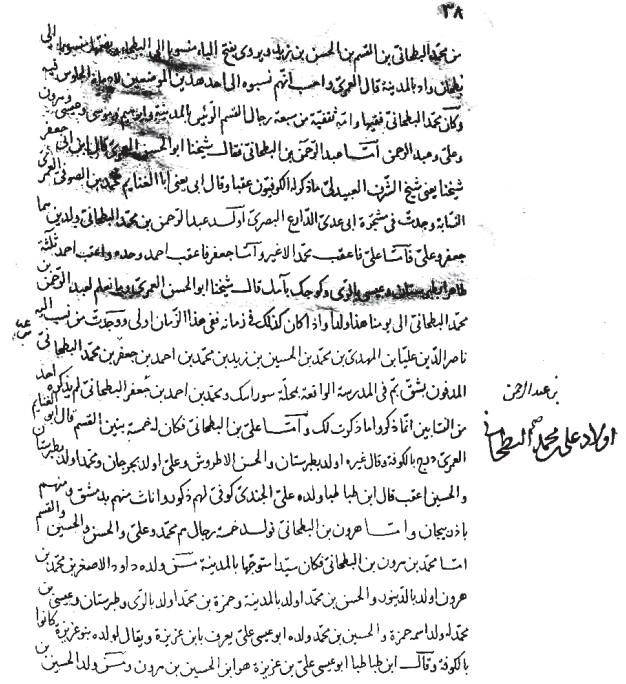 ٣٨
من محمد البطحانى بن القسم بن الحسن بن زيد ويروى بفتح الباء منسوبا الى البطحاء وبضمها منسوبا الى
بطحان واد بالمدينة قال العمرى واحسب انهم نسبوه الى احد هذين الموضعين لادمانه الجلوس فيه
وكان محمد البطحانى فقيها وامه ثقفية من سبعة رجال القسم الرئيس بالمدينة وابرهيم وموسى وعيسى وهرون
وعلى وعبد الرحمن امّا عبد الرحمن بن البطحانى فقال شيخنا ابو الحسن العمرى قال ابن ابى جعفر
شيخنا يعنى شيخ الشرف العبيدلى ما ذكر له الكوفيون عقبا وقال ابى يعنى ابا الغنايم محمد بن الصوفى العمرى
النسابة وجدت فى مشجرة ابى عدى الذارع البصرى اولد عبد الرحمن بن محمد البطحانى ولدين هما
جعفر وعلى فامّا على فاعقب محمدا لا غير وامّا جعفر فاعقب احمد وحده واعقب احمد ثلثة
طاهرا بطبرستان وعيسى بالرى وكوجك بآمل قال شيخنا ابو الحسن العمرى وما نعلم لعبد الرحمن بن
محمد البطحانى الى يومنا هذا ولدا واذا كان كذلك فى زمانه ففى هذا الزمان اولى ووجدت من نسب اليه
ناصر الدين عليا بن المهدى بن محمد بن الحسين بن زيد بن محمد بن احمد بن جعفر بن محمد البطحانى
بن عبد الرحمن
المدفون بشق بم فى المدرسة الواقعة بمحلة سورانيك ومحمد بن احمد بن جعفر البطحانى لم يذكره احد
من النسابين انما ذكروا ما ذكرت لك وامّا على بن البطحانى فكان له خمسة بنين القسم قال ابو الغنايم
اولاد على محمد البطحانى
العمرى درج بالكوفة وقال غيره اولد بطبرستان والحسن الاطروش وعلى اولد بجرجان ومحمد اولد بطبرستان
والحسين اعقب قال ابن طباطبا ولده على الجندى كوفى لهم ذكور واناث منهم بدمشق ومنهم
باذربيجان وامّا هرون بن البطحانى فولد خمسة رجال هم محمد وعلى والحسن والحسين والقسم
امّا محمد بن هرون بن البطحانى فكان سيدا متوجها بالمدينة فمن ولده داود الاصغر بن محمد بن
هرون اولد بالدينور والحسن بن محمد اولد بالمدينة وحمزة بن محمد اولد بالرى وطبرستان وعيسى بن
محمد له ولد اسمه حمزة والحسين بن محمد ولده ابو عيسى على يعرف بابن عزيزة ويقال لولده بنو عزيزة كانوا
بالكوفة وقال ابن طباطبا ابو عيسى على بن عزيزة هو ابن الحسين بن هرون ومن ولد الحسين بن